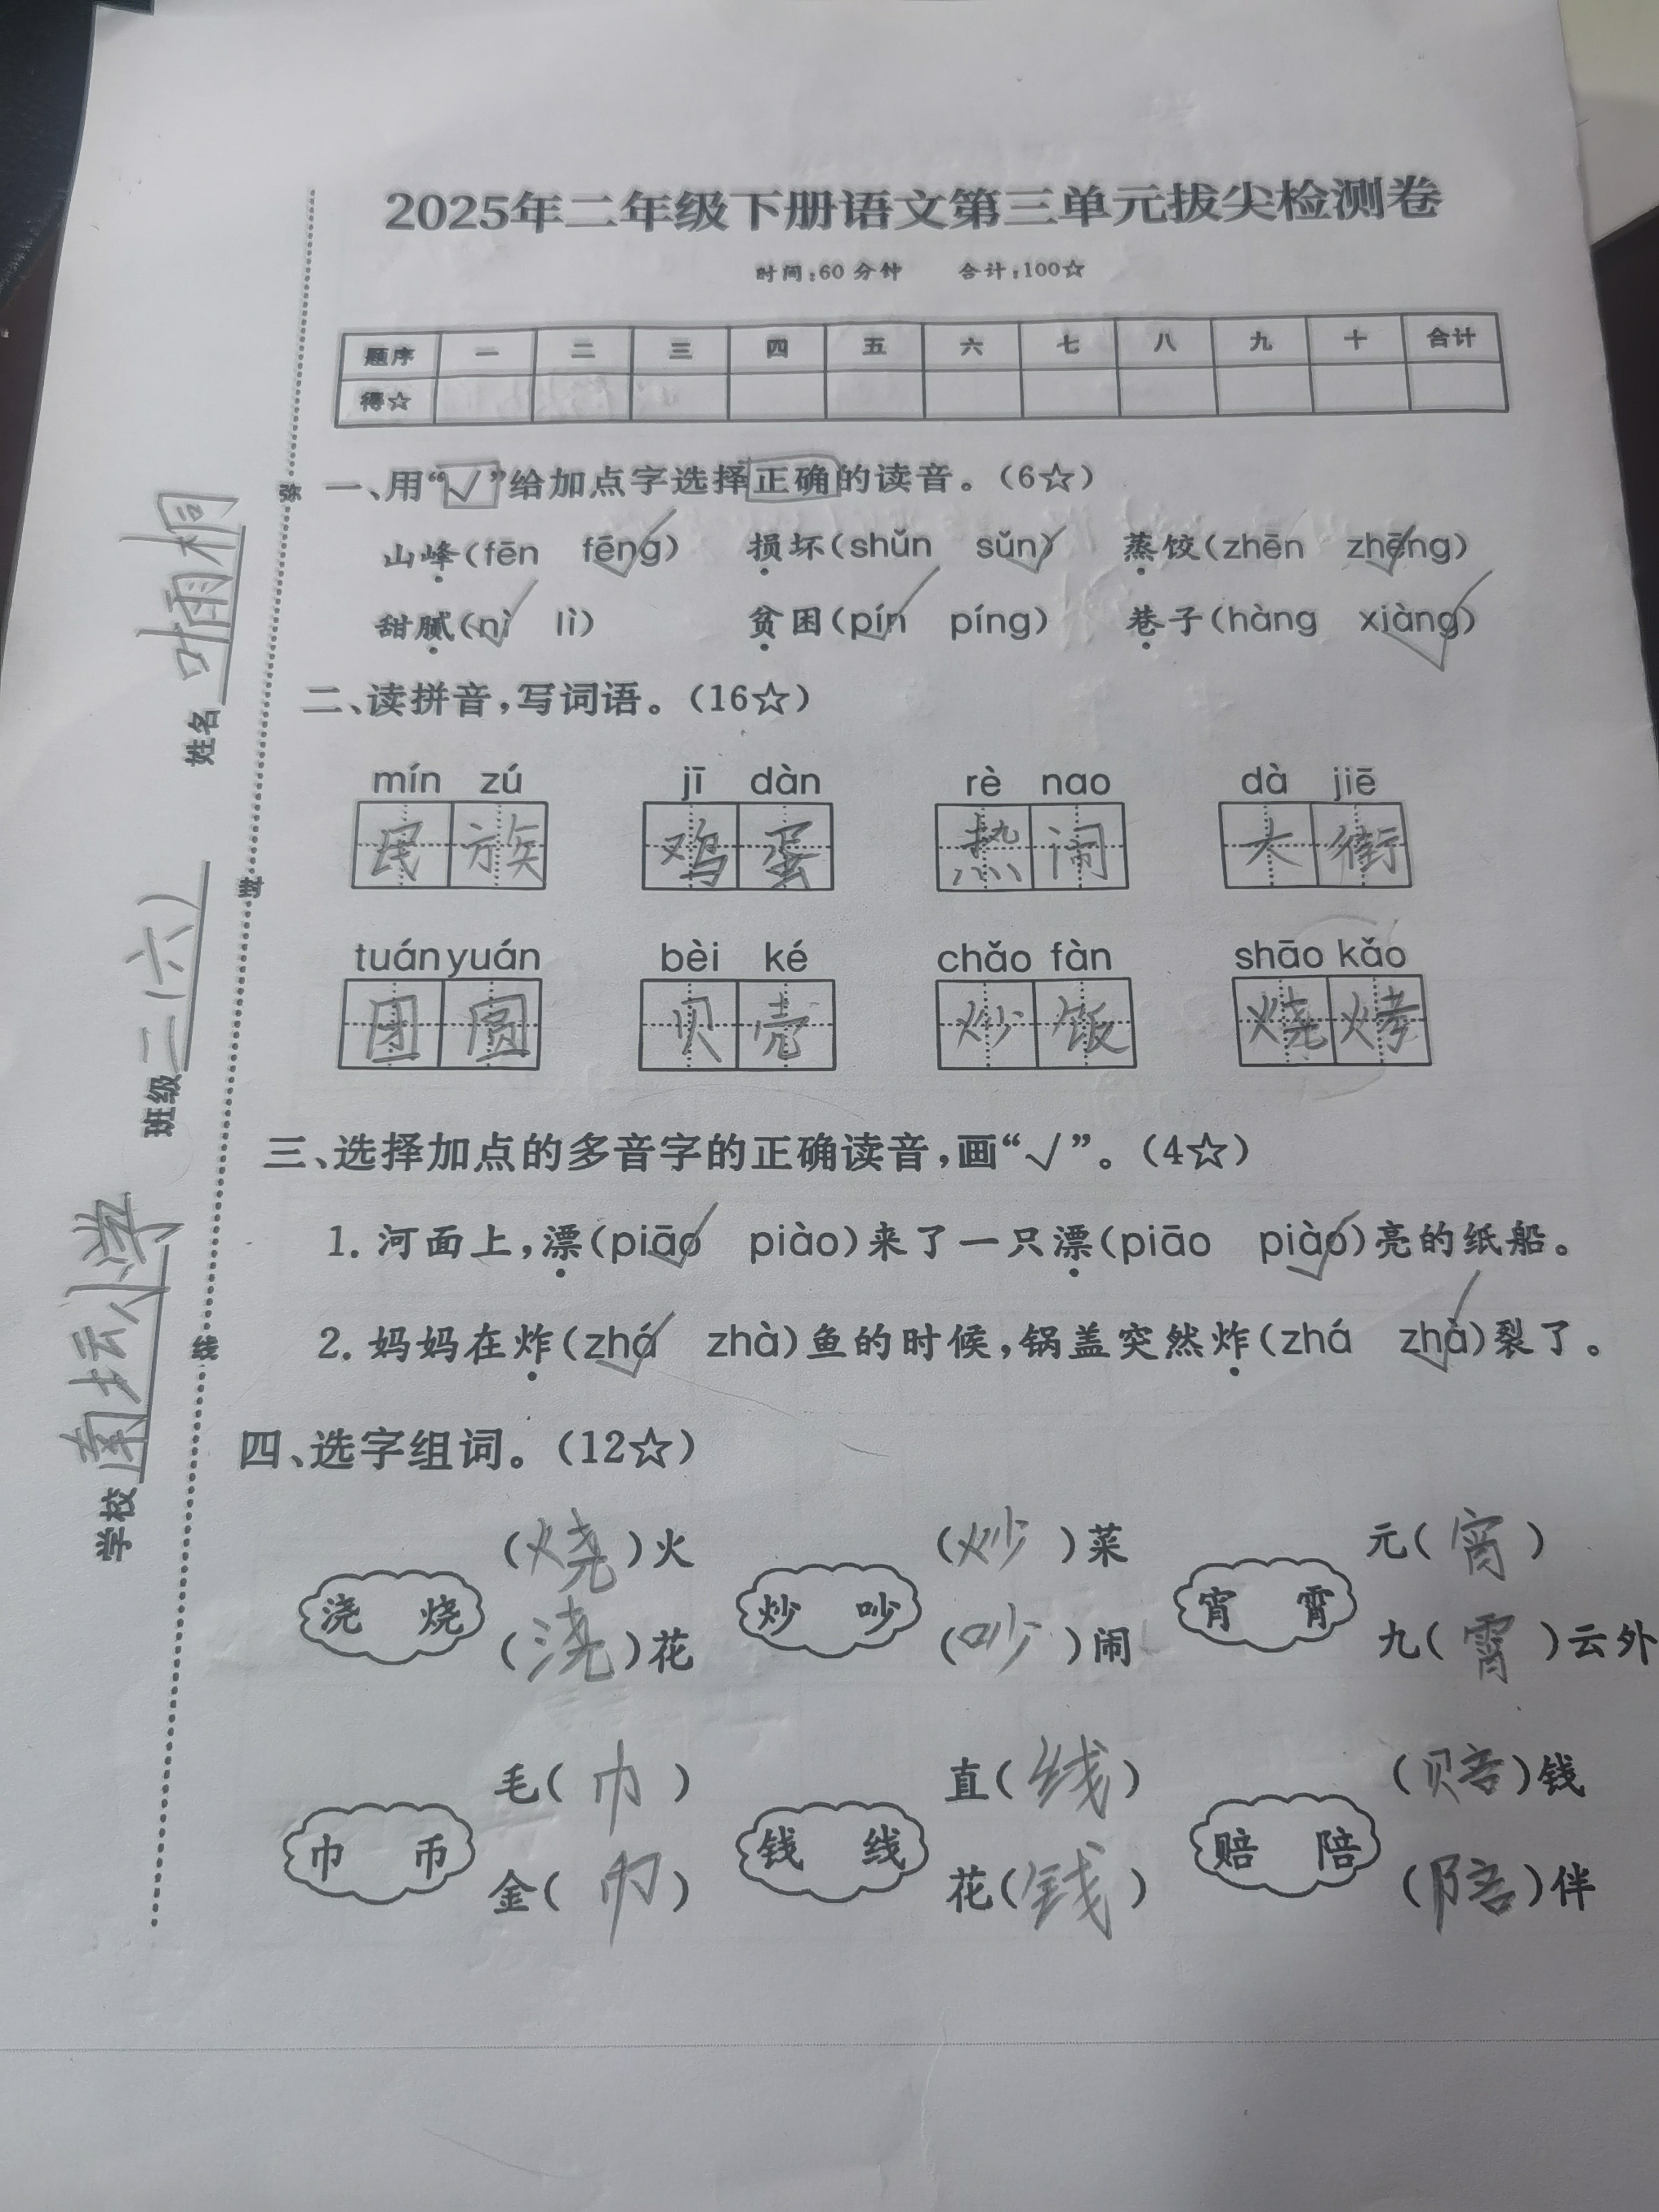 2025年二年级下册语文第三单元拔尖检测卷
时间:60 分钟 合计:100☆
题序 一 二 三 四 五 六 七 八 九 十 合计
得☆
一、用“√”给加点字选择正确的读音。(6☆)
山峰(fēn fēng) 损坏(shǔn sǔn) 蒸饺(zhēn zhēng)
甜腻(nì lì) 贫困(pín píng) 巷子(hàng xiàng)
二、读拼音,写词语。(16☆)
mín zú jī dàn rè nao dà jiē
民族 鸡蛋 热闹 大街
tuán yuán bèi ké chǎo fàn shāo kǎo
团圆 贝壳 炒饭 烧烤
三、选择加点的多音字的正确读音,画“√”。(4☆)
1. 河面上,漂(piāo piào)来了一只漂(piāo piào)亮的纸船。
2. 妈妈在炸(zhá zhà)鱼的时候,锅盖突然炸(zhá zhà)裂了。
四、选字组词。(12☆)
(烧)火 (炒)菜 元(宵)
浇 烧 炒 吵 宵 霄
(浇)花 (吵)闹 九(霄)云外
毛(巾) 直(线) (赔)钱
巾 币 钱 线 赔 陪
金(币) 花(钱) (陪)伴
学校 南坛小学 班级 二(六) 姓名 叶雨桐
弥
封
线